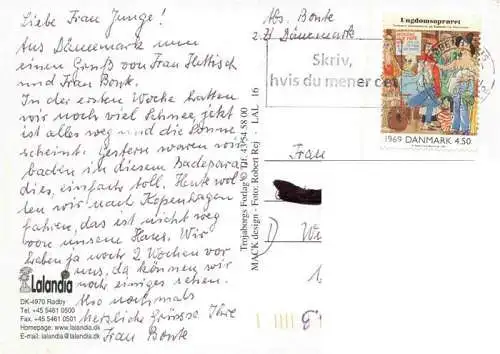 Liebe Frau Junge!
Aus Dänemark nun
einen Gruß von Frau Hettisch
und Frau Bonk.
In der ersten Woche hatten
wir noch viel Schnee, jetzt
ist alles weg und die Sonne
scheint. Gestern waren wir
baden in diesem Badepara
dies, einfach toll. Heute wol
len wir nach Kopenhagen
fahren, das ist nicht weg
von unserem Haus. Wir
haben ja noch 2 Wochen vor
uns, da können wir
noch einiges sehen.
Also nochmals
herzliche Grüsse Ihre
Frau Bonk
Lalandia
DK-4970 Rødby
Tel. +45 5461 0500
Fax. +45 5461 0501
Homepage: www.lalandia.dk
E-mail: lalandia@lalandia.dk
Trojaborgs Forlag © Tlf. 43 54 58 00
MACK design - Foto: Robert Rej - LAL 16
Abs. Bonk
z.Zt Dänemark
Skriv,
hvis du mener det
Ungdomsoprøret
1969 DANMARK 4.50
Frau